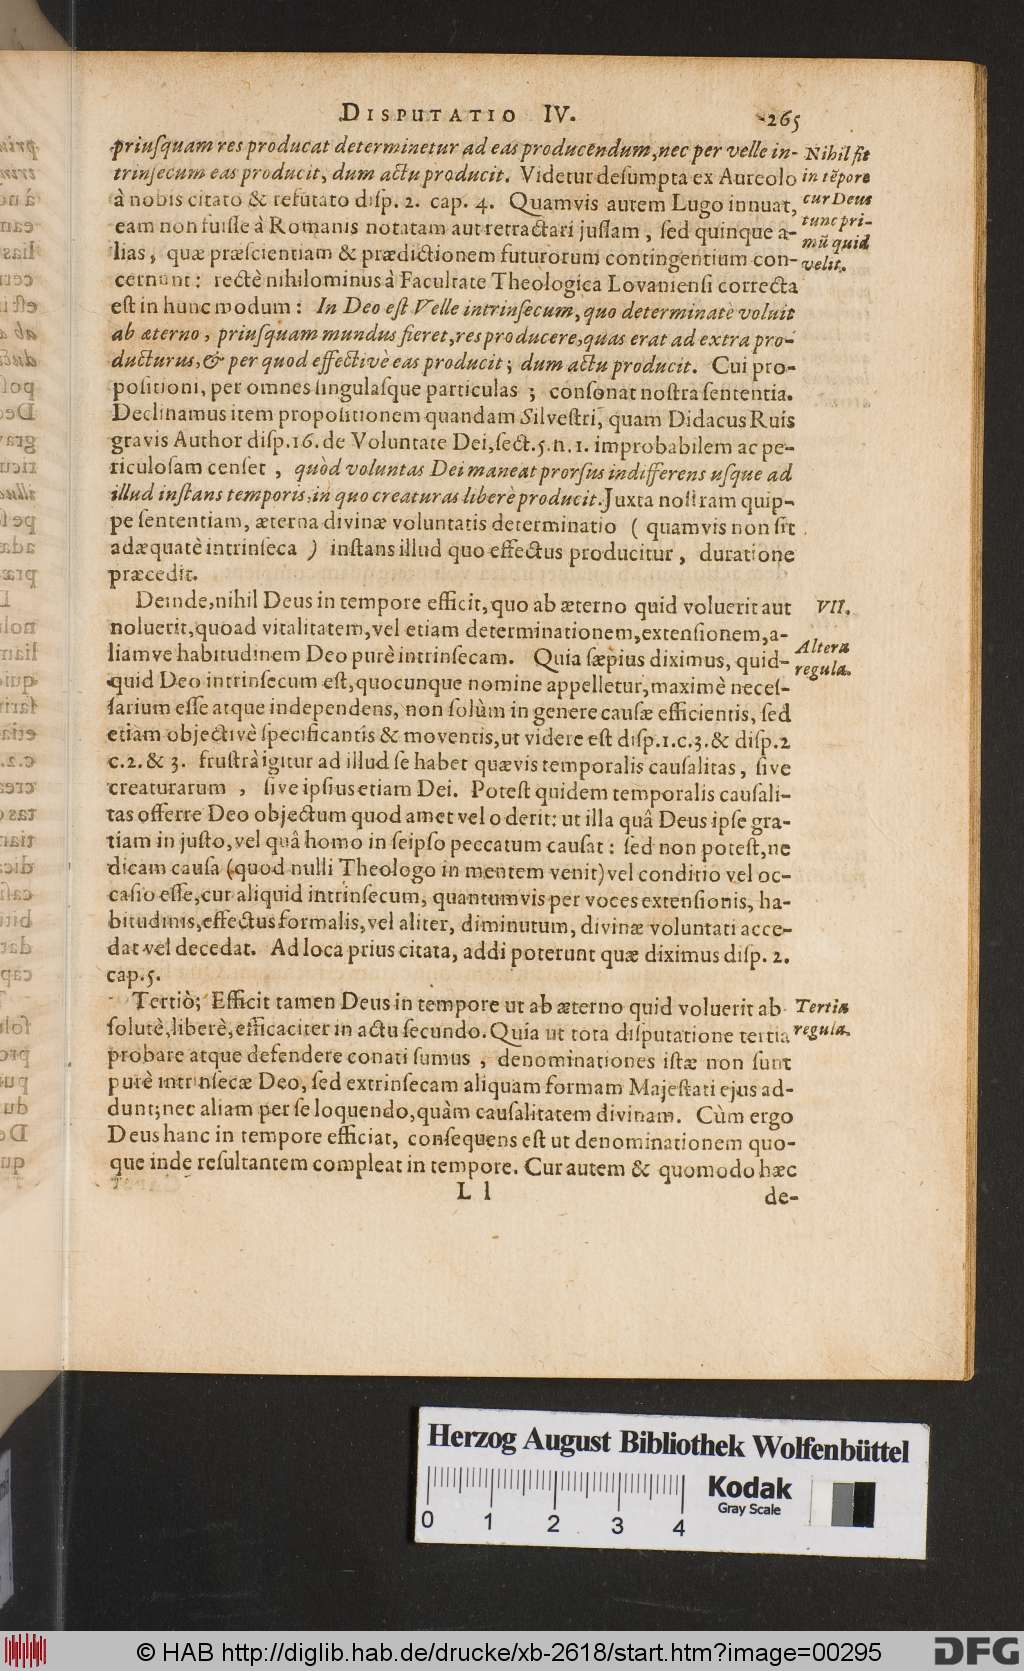 DISPUTATIO IV. 265
priuſquam res producat determinetur ad eas producendum, nec per velle in-
trinſecum eas producit, dum actu producit. Videtur deſumpta ex Aureolo
à nobis citato & refutato diſp. 2. cap. 4. Quamvis autem Lugo innuat,
eam non fuiſſe à Romanis notatam aut retractari juſſam, ſed quinque a-
lias, quæ præſcientiam & prædictionem futurorum contingentium con-
cernunt: rectè nihilominus à Facultate Theologica Lovaniensi correcta
est in hunc modum: In Deo eſt Velle intrinſecum, quo determinatè voluit
ab æterno, priuſquam mundus fieret, res producere, quas erat ad extra pro-
ducturus, & per quod effectivè eas producit; dum actu producit. Cui pro-
poſitioni, per omnes ſingulaſque particulas; conſonat noſtra ſententia.
Declinamus item propoſitionem quandam Silveſtri, quam Didacus Ruis
gravis Author diſp. 16. de Voluntate Dei, ſect. 5. n. 1. improbabilem ac pe-
riculoſam cenſet, quòd voluntas Dei maneat prorſus indifferens uſque ad
illud inſtans temporis, in quo creaturas liberè producit. Juxta noſtram quip-
pe ſententiam, æterna divinæ voluntatis determinatio (quamvis non ſit
adæquatè intrinſeca) inſtans illud quo effectus producitur, duratione
præcedit.
Nihil fit
in tẽpore
cur Deus
tunc pri-
mũ quid
velit.
Deinde, nihil Deus in tempore efficit, quo ab æterno quid voluerit aut
noluerit, quoad vitalitatem, vel etiam determinationem, extenſionem, a-
liamve habitudinem Deo purè intrinſecam. Quia ſæpius diximus, quid-
quid Deo intrinſecum eſt, quocunque nomine appelletur, maximè neceſ-
ſarium eſſe atque independens, non ſolùm in genere cauſæ efficientis, ſed
etiam objectivè ſpecificantis & moventis, ut videre eſt diſp. 1. c. 3. & diſp. 2
c. 2. & 3. fruſtrà igitur ad illud ſe habet quævis temporalis cauſalitas, ſive
creaturarum, ſive ipſius etiam Dei. Poteſt quidem temporalis cauſali-
tas offerre Deo objectum quod amet vel oderit: ut illa quâ Deus ipſe gra-
tiam in juſto, vel quâ homo in ſeipſo peccatum cauſat: ſed non poteſt, ne
dicam cauſa (quod nulli Theologo in mentem venit) vel conditio vel oc-
caſio eſſe, cur aliquid intrinſecum, quantumvis per voces extenſionis, ha-
bitudinis, effectus formalis, vel aliter, diminutum, divinæ voluntati acce-
dat vel decedat. Ad loca prius citata, addi poterunt quæ diximus diſp. 2.
cap. 5.
VII.
Altera
regula.
Tertiò; Efficit tamen Deus in tempore ut ab æterno quid voluerit ab
ſolutè, liberè, efficaciter in actu ſecundo. Quia ut tota diſputatione tertia
probare atque defendere conati ſumus, denominationes iſtæ non ſunt
purè intrinſecæ Deo, ſed extrinſecam aliquam formam Majeſtati ejus ad-
dunt; nec aliam per ſe loquendo, quàm cauſalitatem divinam. Cùm ergo
Deus hanc in tempore efficiat, conſequens eſt ut denominationem quo-
que inde reſultantem compleat in tempore. Cur autem & quomodo hæc
Tertia
regula.
L l
de-
Herzog August Bibliothek Wolfenbüttel
0 1 2 3 4
Kodak
Gray Scale
© HAB http://diglib.hab.de/drucke/xb-2618/start.htm?image=00295
DFG